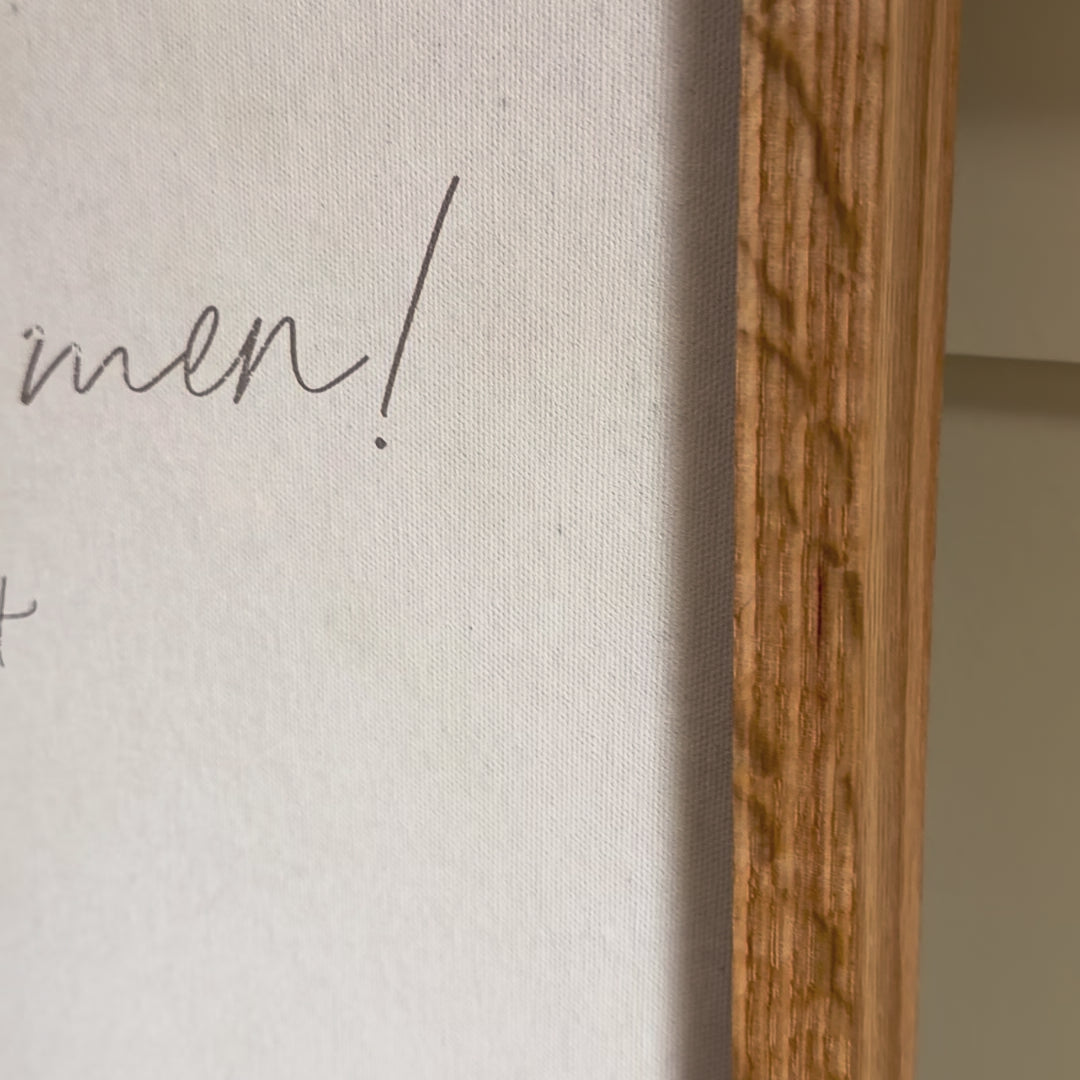 men!
t